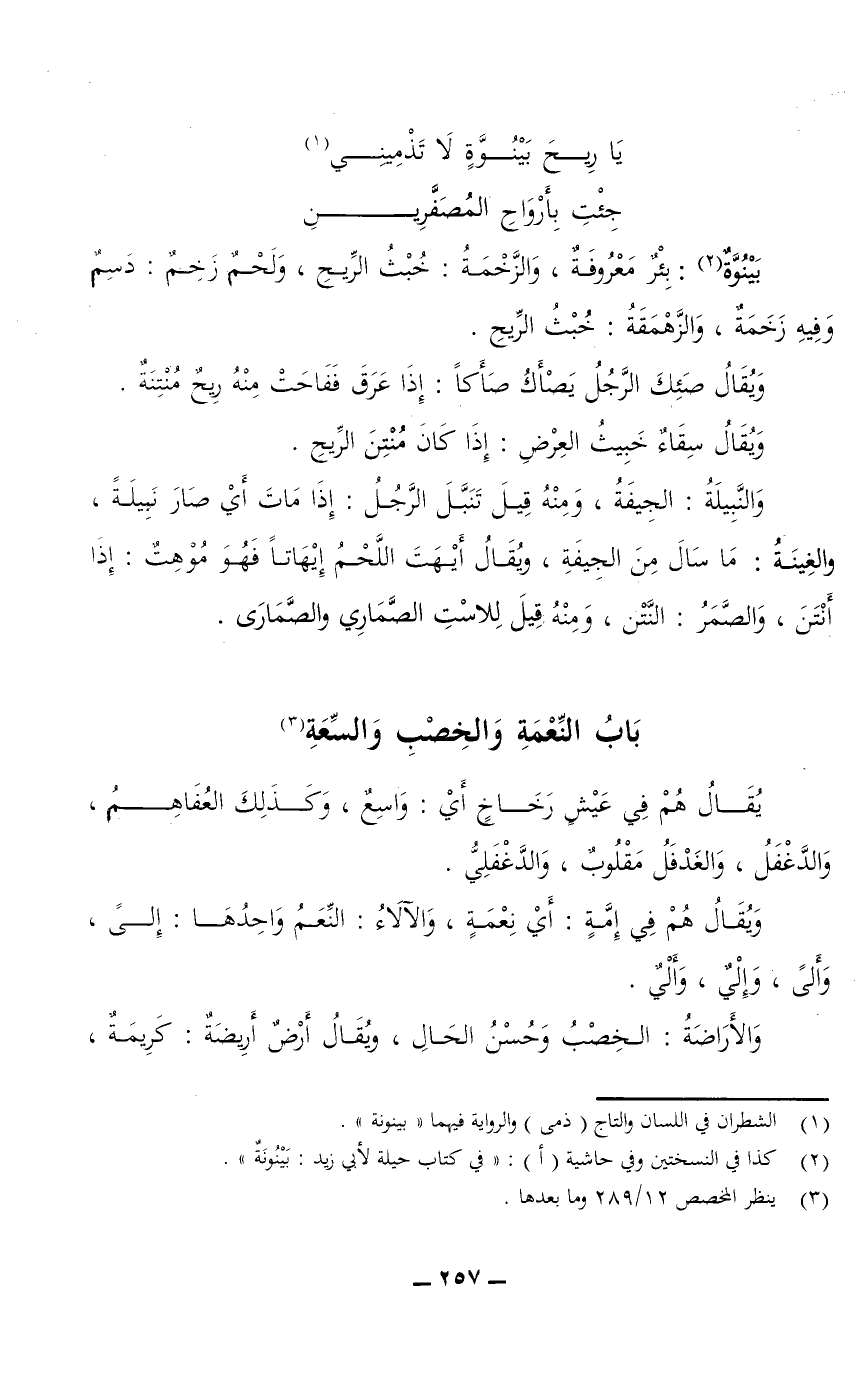 يَا رِيـحَ بَيْنُـوَّةٍ لَا تَذْمِينِـي(١)
جِئْتِ بِأَرْوَاحِ المُصَفَّرِيـنِ
بَيْنُوَّةٌ(٢) : بِئْرٌ مَعْرُوفَةٌ ، وَالزَّخْمَةُ : خُبْثُ الرِّيحِ ، وَلَحْمٌ زَخِمٌ : دَسِمٌ
وَفِيهِ زَخَمَةٌ ، وَالزَّهْمَقَةُ : خُبْثُ الرِّيحِ .
وَيُقَالُ صَئِكَ الرَّجُلُ يَصْأَكُ صَأَكاً : إِذَا عَرَقَ فَفَاحَتْ مِنْهُ رِيحٌ مُنْتِنَةٌ .
وَيُقَالُ سِقَاءٌ خَبِيثُ العِرْضِ : إِذَا كَانَ مُنْتِنَ الرِّيحِ .
وَالنَّبِيلَةُ : الجِيفَةُ ، وَمِنْهُ قِيلَ تَنَبَّلَ الرَّجُلُ : إِذَا مَاتَ أَيْ صَارَ نَبِيلَةً ،
والغِينَةُ : مَا سَالَ مِنَ الجِيفَةِ ، ويُقَالُ أَيْهَتَ اللَّحْمُ إِيْهَاتاً فَهُوَ مُوْهِتٌ : إِذَا
أَنْتَنَ ، وَالصَّمَرُ : النَّتْن ، وَمِنْهُ قِيلَ لِلاسْتِ الصَّمَارِي والصَّمَارَى .
بَابُ النِّعْمَةِ وَالخِصْبِ وَالسِّعَةِ(٣)
يُقَـالُ هُمْ فِي عَيْشٍ رَخَـاخٍ أَيْ : وَاسِعٌ ، وَكَـذَلِكَ العُفَاهِـمُ ،
وَالدَّغْفَلُ ، وَالغَدْفَلُ مَقْلُوبٌ ، وَالدَّغْفَلِيُّ .
وَيُقَالُ هُمْ فِي إِمَّةٍ : أَيْ نِعْمَةٍ ، وَالآلَاءُ : النِّعَمُ وَاحِدُهَـا : إِلـىً ،
وَأَلىً ، وَإِلْيٌ ، وَأَلْيٌ .
وَالأَرَاضَةُ : الـخِصْبُ وَحُسْنُ الحَالِ ، ويُقَالُ أَرْضٌ أَرِيضَةٌ : كَرِيمَةٌ ،
(١) الشطران في اللسان والتاج ( ذمى ) والرواية فيهما « بينونة » .
(٢) كذا في النسختين وفي حاشية ( أ ) : « في كتاب حيلة لأبي زيد : بَيْنُونَةٌ » .
(٣) ينظر المخصص ٢٨٩/١٢ وما بعدها .
ــ ٢٥٧ ــ